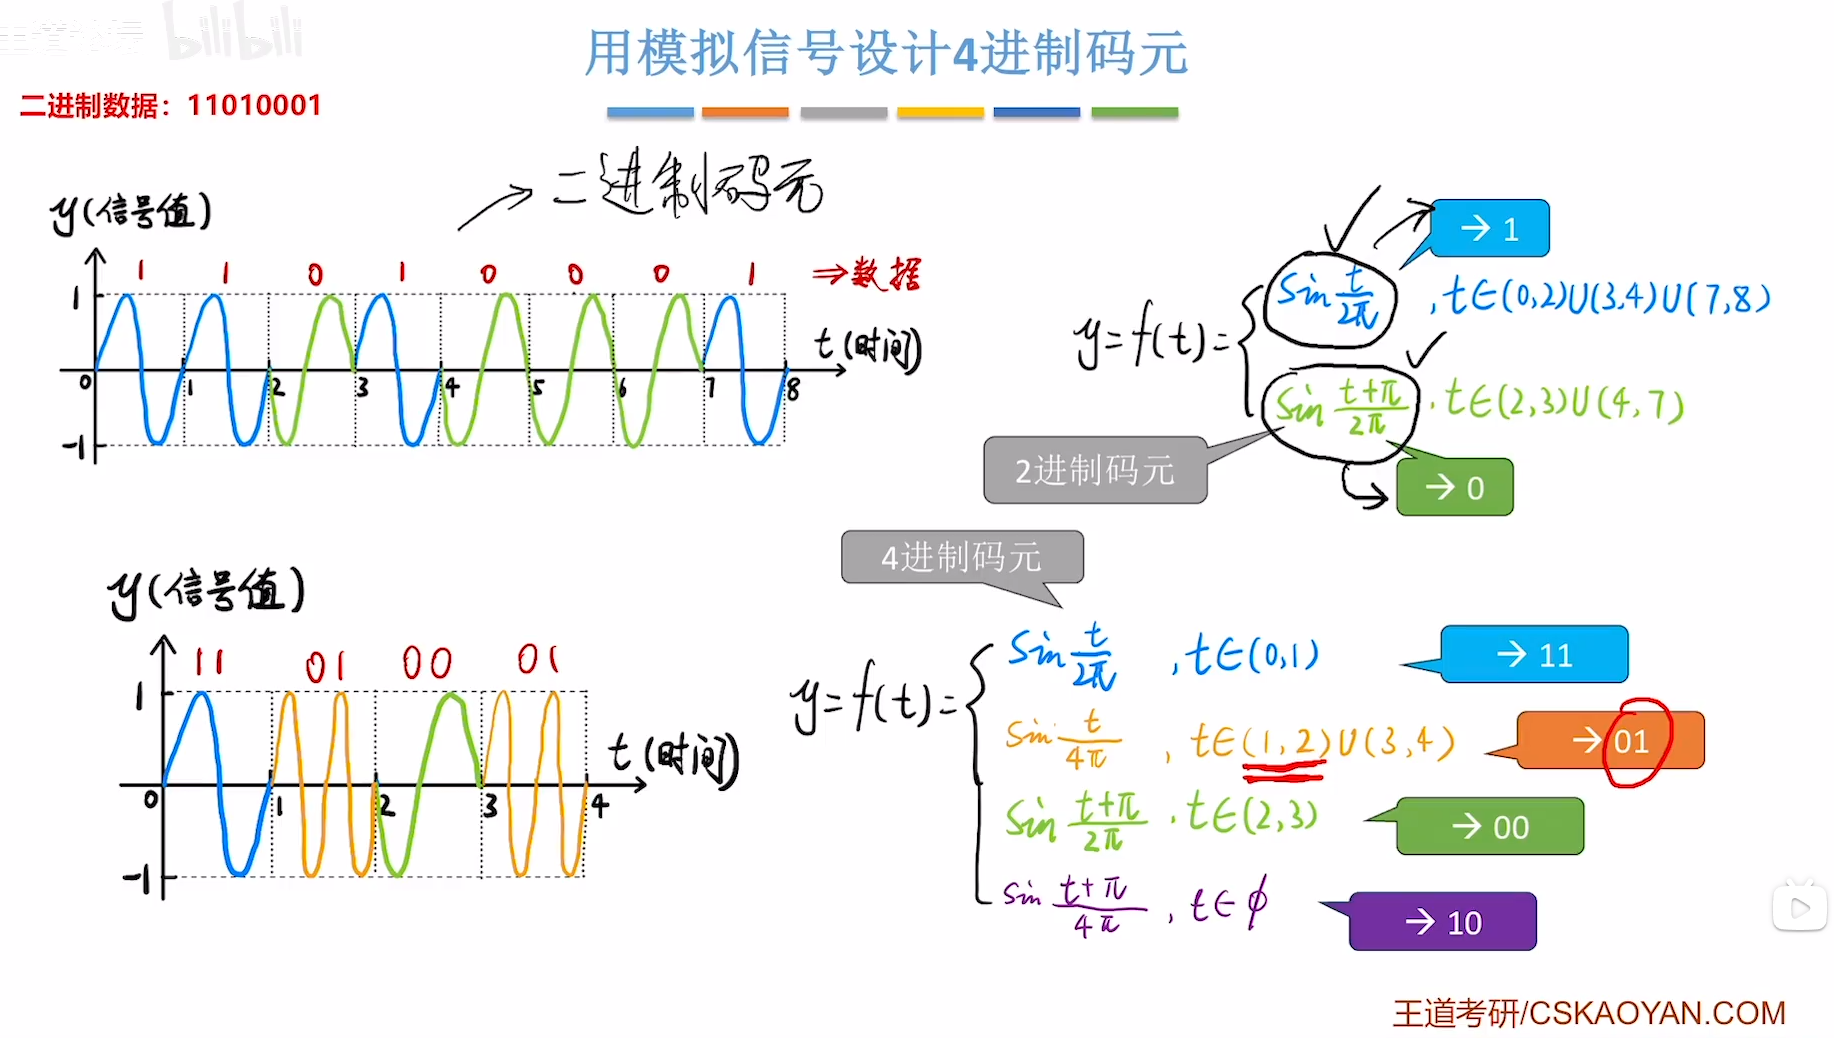 bilibili
用模拟信号设计4进制码元
二进制数据：11010001
→ 二进制码元
y(信号值)
1 1 0 1 0 0 0 1 ⇒数据
1
t(时间)
0 1 2 3 4 5 6 7 8
-1
→ 1
y=f(t)=
sin t/2π , t∈(0,2)∪(3,4)∪(7,8)
sin t+π/2π , t∈(2,3)∪(4,7)
2进制码元
→ 0
4进制码元
y(信号值)
11 01 00 01
1
t(时间)
0 1 2 3 4
-1
y=f(t)=
sin t/2π , t∈(0,1) → 11
sin t/4π , t∈(1,2)∪(3,4) → 01
sin t+π/2π , t∈(2,3) → 00
sin t+π/4π , t∈ϕ → 10
王道考研/CSKAOYAN.COM